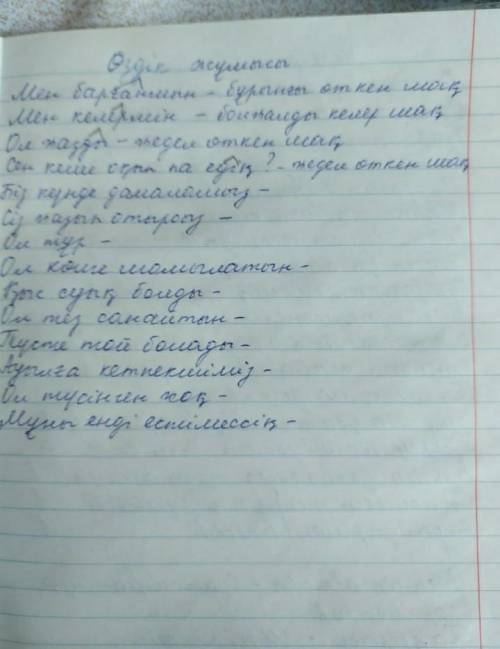 Өздік жұмысы
Мен барғанмын - бұрынғы өткен шақ
Мен келермін - болжалды келер шақ
Ол жазды - жедел өткен шақ
Сен кеше оқып па едің? - жедел өткен шақ
Біз күнде дамаламыз -
Сіз жазып отырсыз -
Ол тұр -
Ол көше шомылатын -
Қыс суық болды -
Ол тез санайтын -
Түсте той болады -
Ауылға кетпекшіміз -
Ол түсінген жоқ -
Мұны енді естімессің -